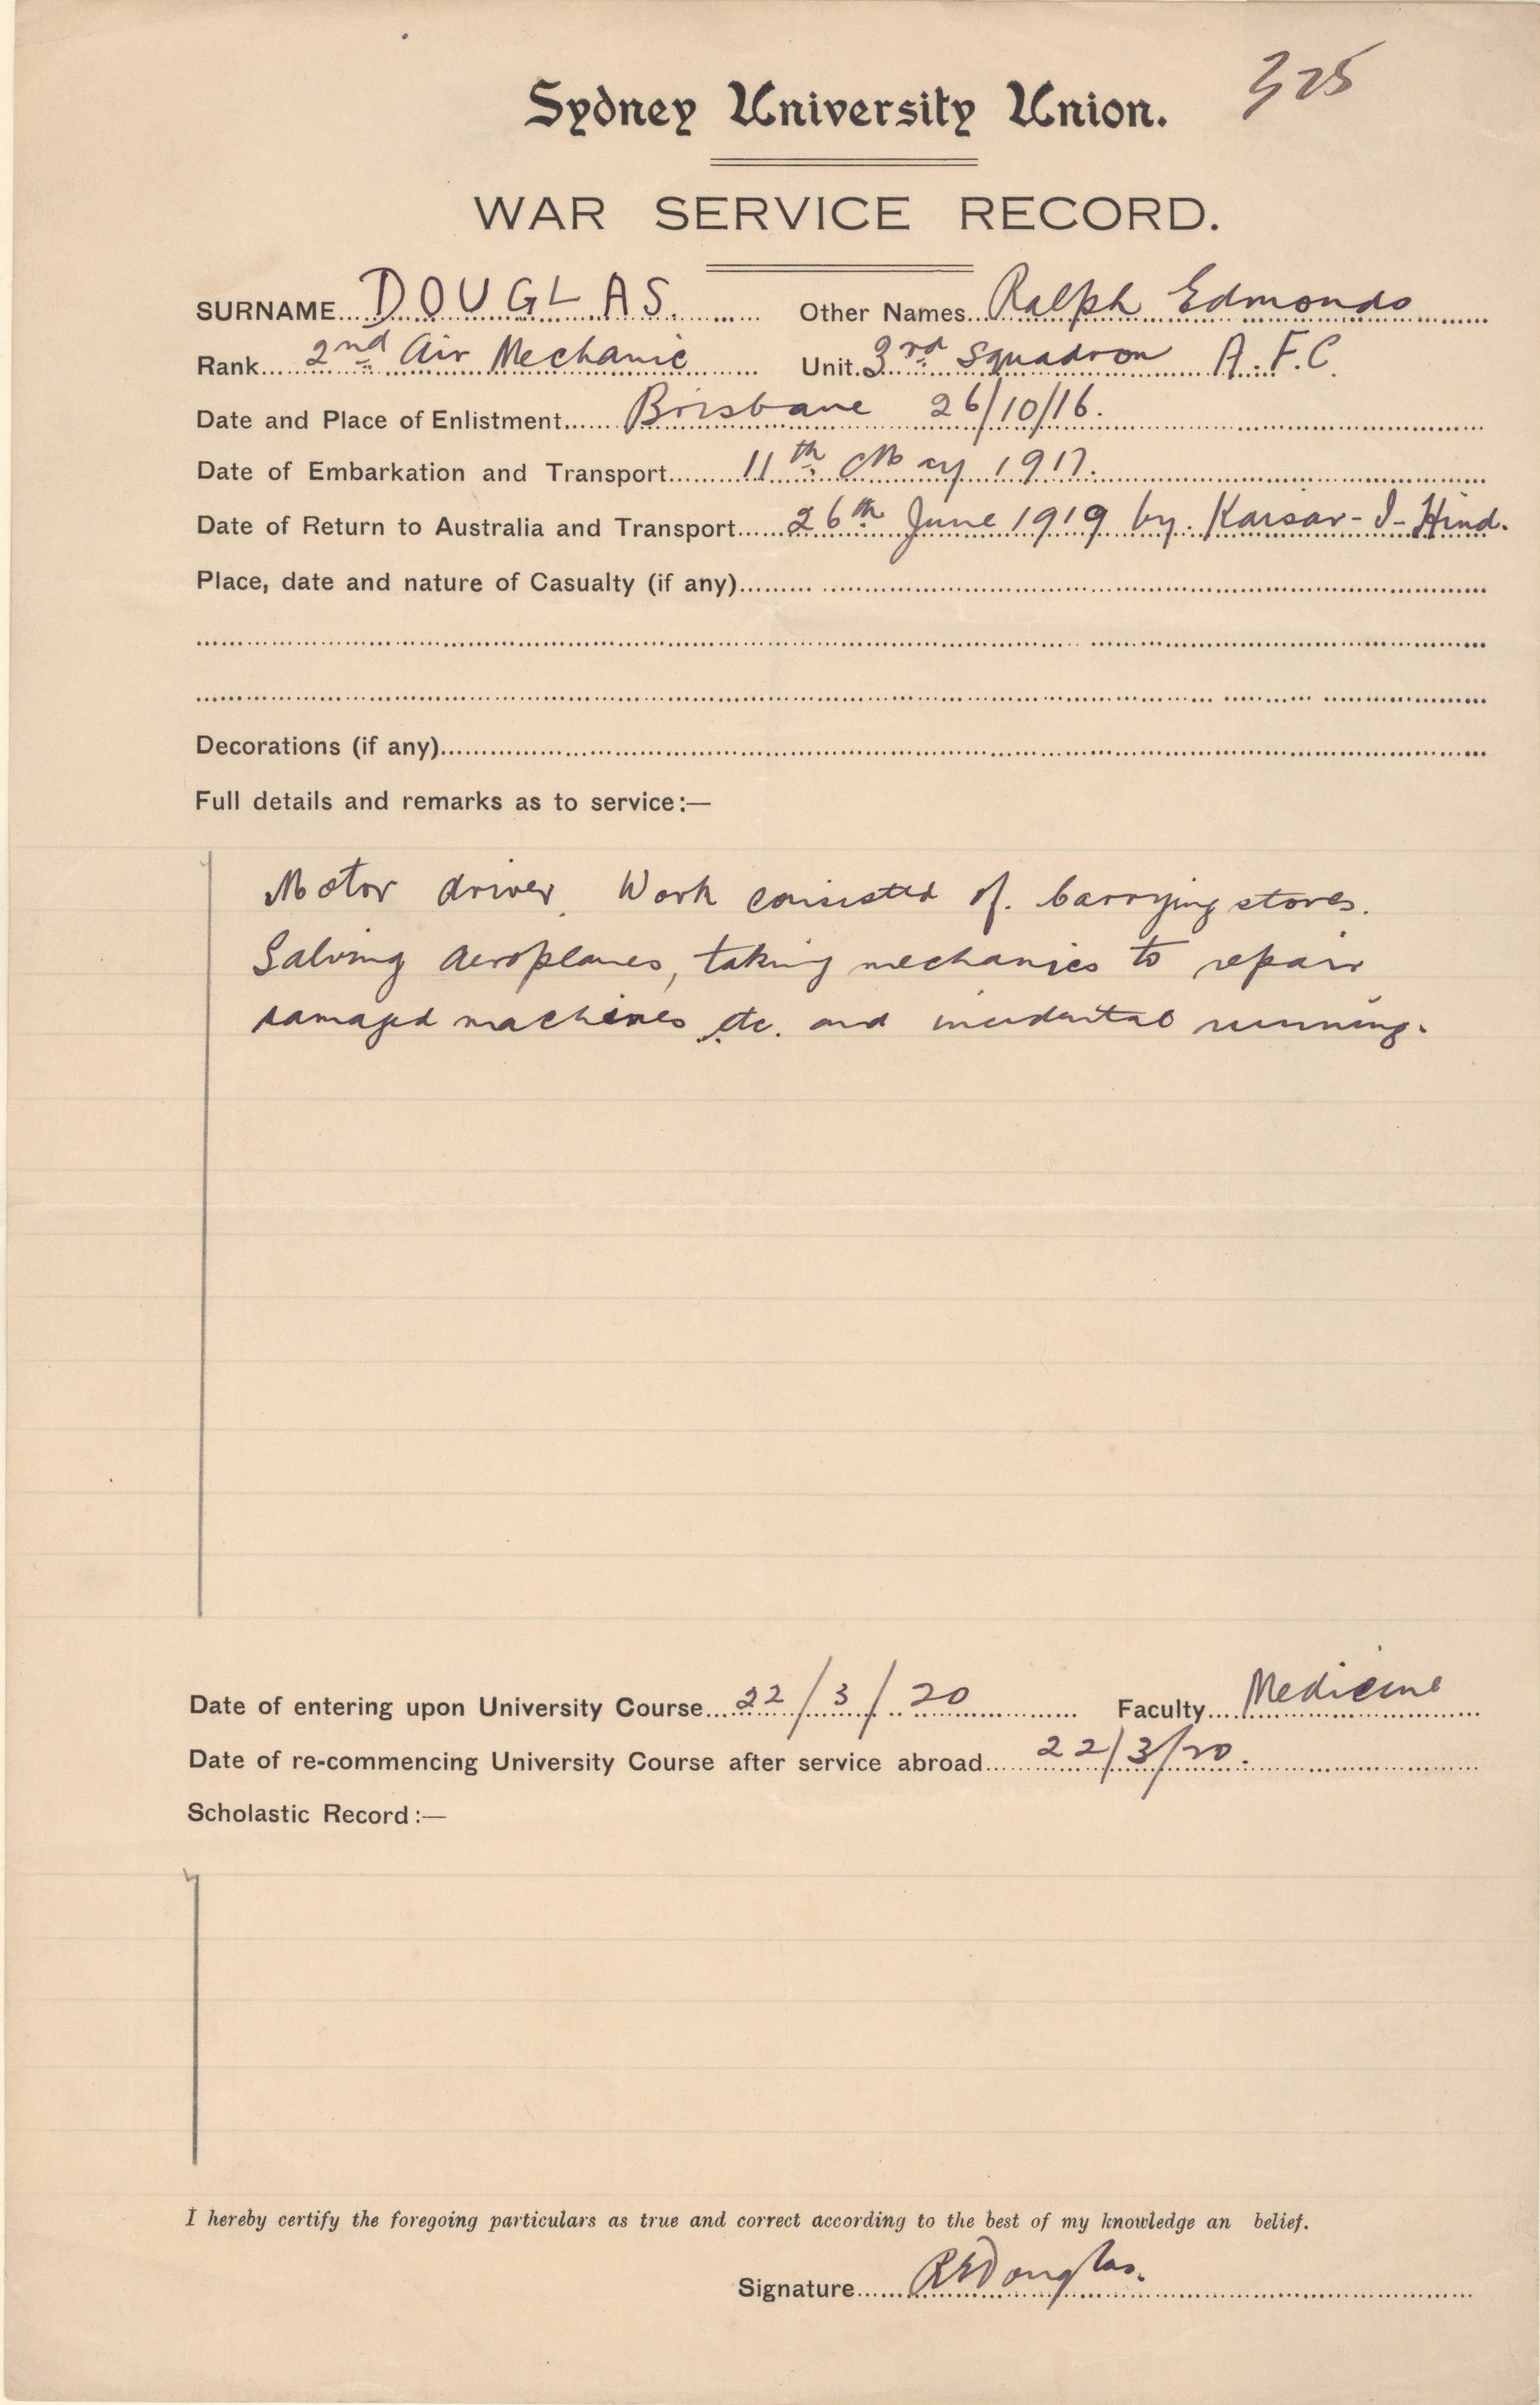 325
Sydney University Union.
WAR SERVICE RECORD.
SURNAME DOUGLAS. Other Names Ralph Edmonds
Rank 2nd Air Mechanic Unit 3rd Squadron A.F.C.
Date and Place of Enlistment Brisbane 26/10/16.
Date of Embarkation and Transport 11th May 1917.
Date of Return to Australia and Transport 26th June 1919 by. Kaisar-I-Hind.
Place, date and nature of Casualty (if any)
Decorations (if any)
Full details and remarks as to service:—
Motor driver. Work consisted of. Carrying stores.
Salving Aeroplanes, taking mechanics to repair
damaged machines etc. and incidental running.
Date of entering upon University Course 22/3/20 Faculty Medicine
Date of re-commencing University Course after service abroad 22/3/20.
Scholastic Record:—
I hereby certify the foregoing particulars as true and correct according to the best of my knowledge an belief.
Signature REDouglas.